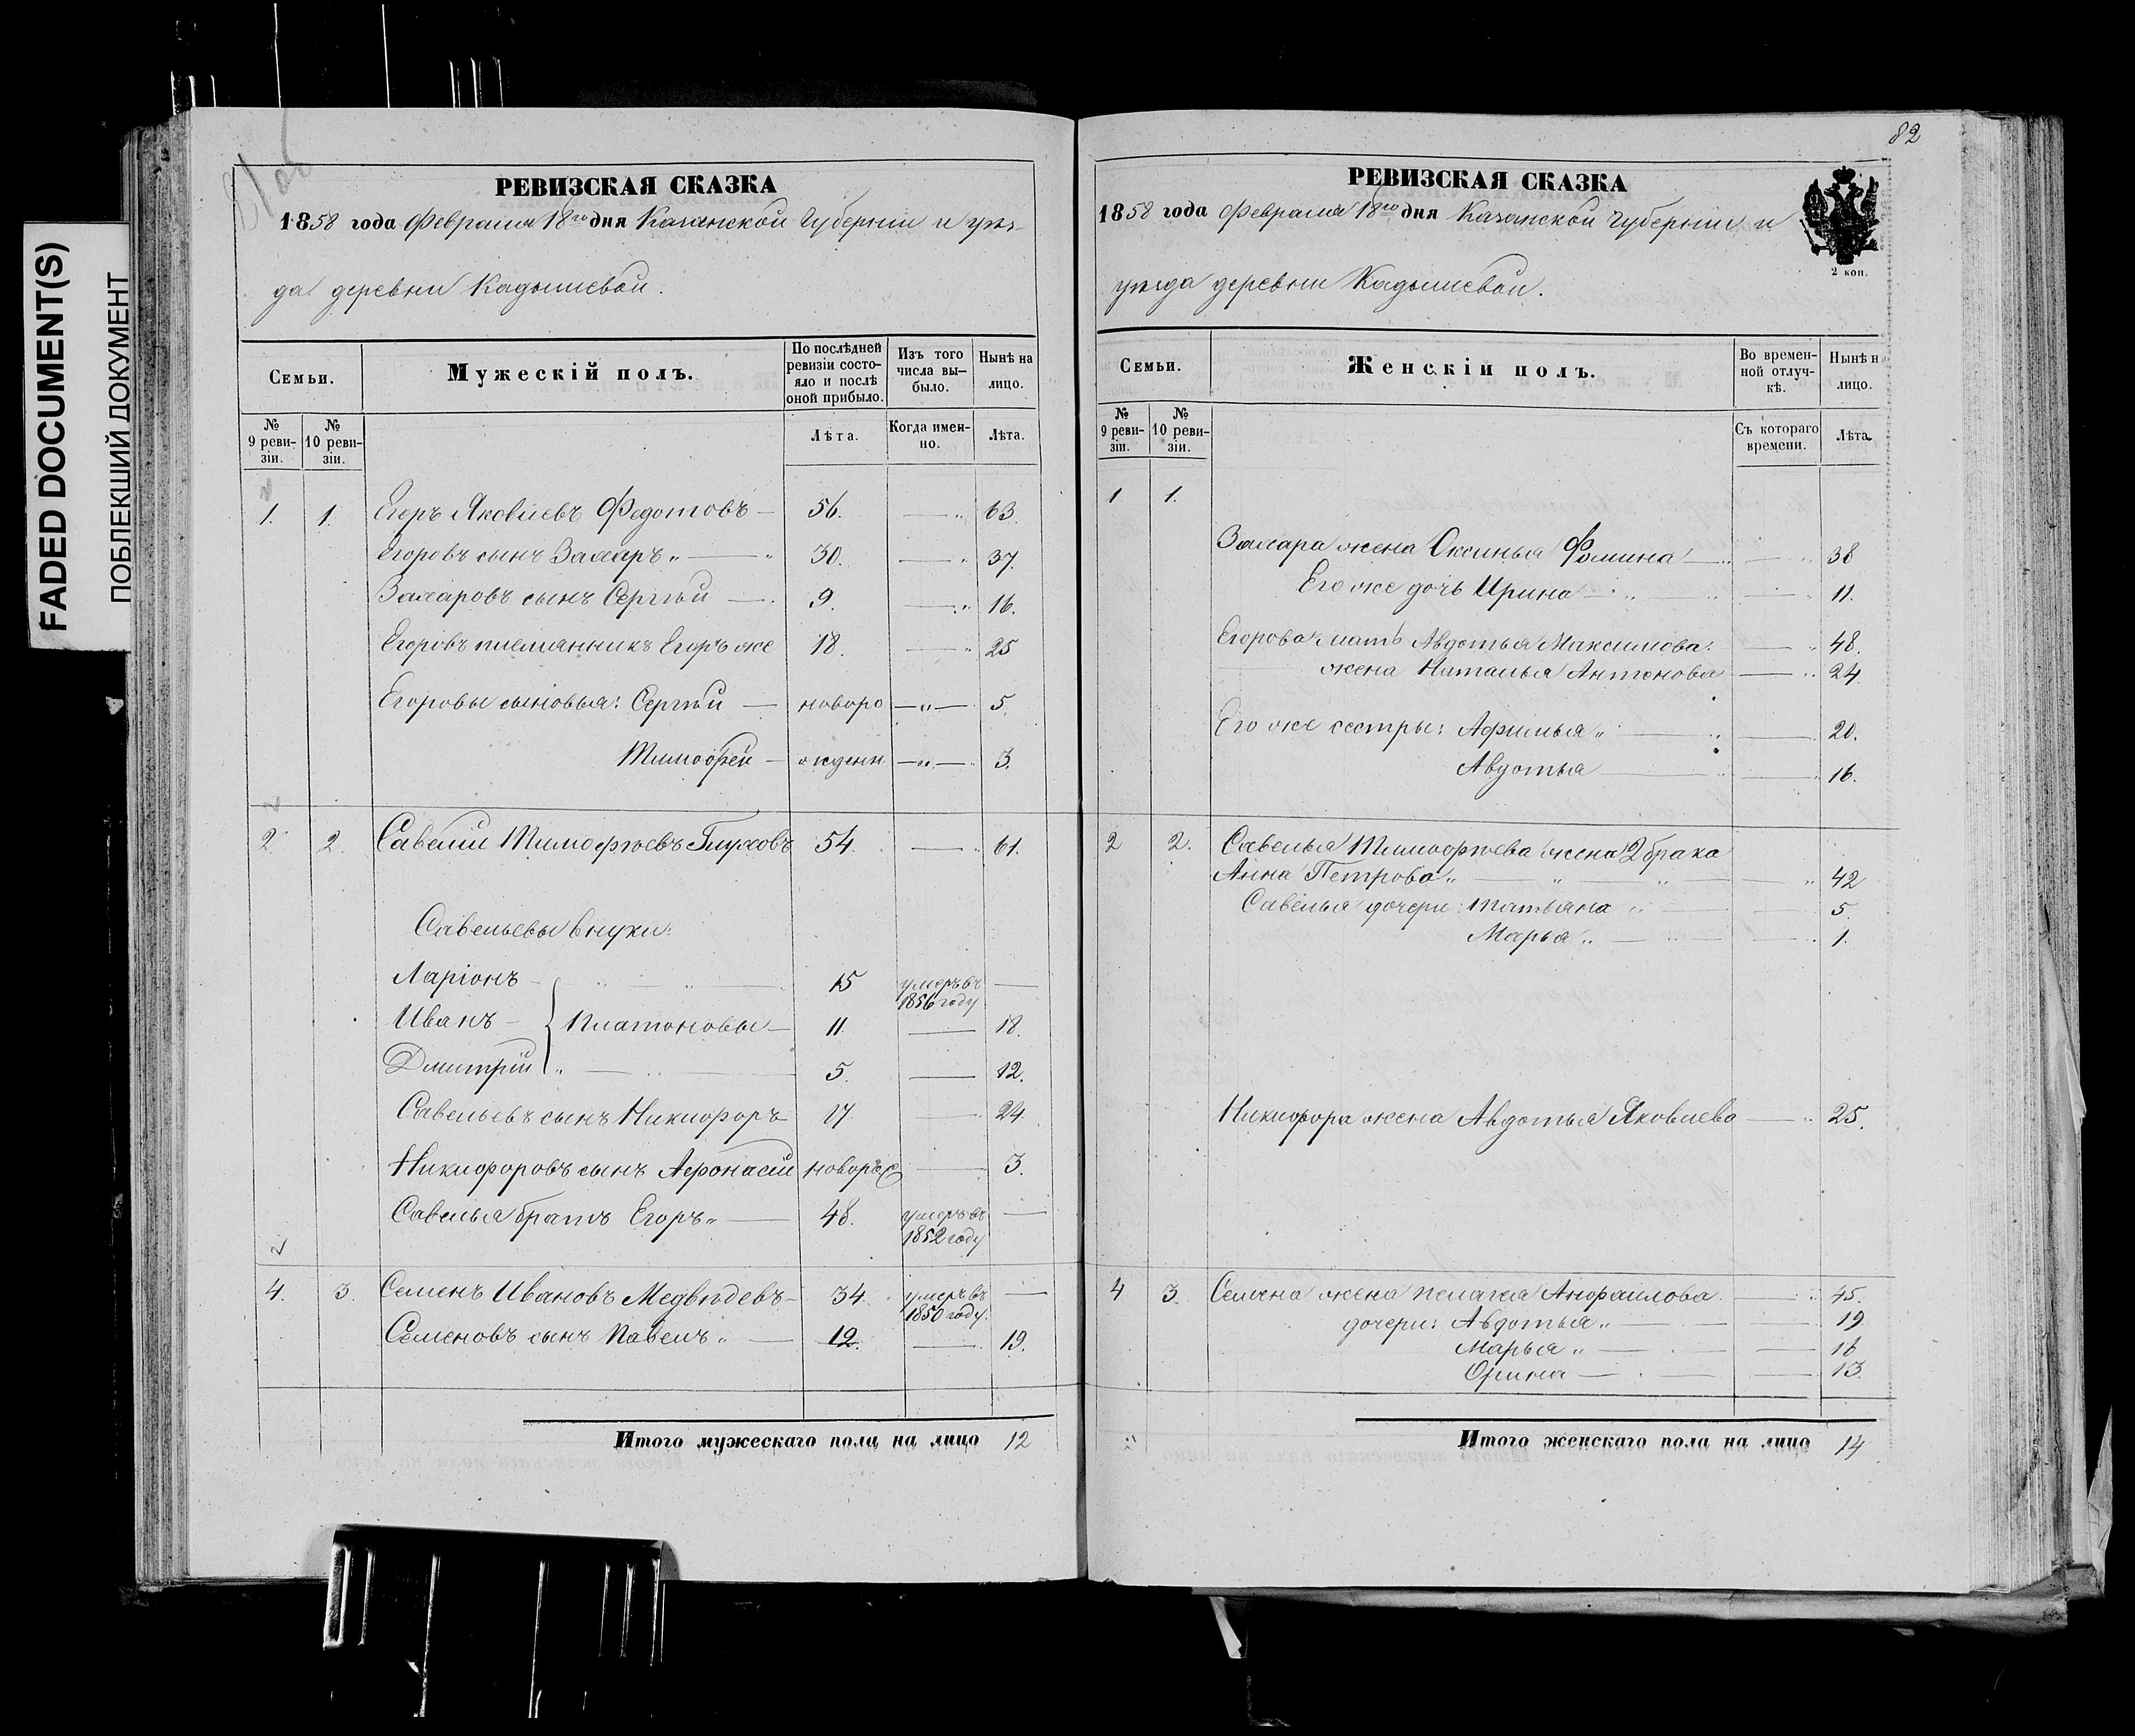 FADED DOCUMENT(S)
ПОБЛЕКШИЙ ДОКУМЕНТ
81 об
РЕВИЗСКАЯ СКАЗКА
1858 года Февраля 18го дня Казанской Губернии и уѣз-
да деревни Кадышевой.
Семьи.
Мужескій полъ.
По послѣдней ревизіи состо-яло и послѣ оной прибыло.
Изъ того числа вы-было.
Нынѣ на лицо.
№ 9 реви-зіи.
№ 10 реви-зіи.
Лѣта.
Когда имен-но.
Лѣта.
1. 1. Егоръ Яковлевъ Федотовъ — 56. — 63.
Егоровъ сынъ Захаръ „ — 30. — 37.
Захаровъ сынъ Сергѣй — 9. — 16.
Егоровъ племянникъ Егоръ же 18. — 25
Егоровы сыновья: Сергѣй — новоро — „ — 5.
Тимофей — жденн — „ — 3.
2 2. Савелій Тимофѣевъ Глуховъ 54. — 61.
Савельевы внуки:
Ларіонъ — 15 умеръ въ 1856 году —
Иванъ — Платоновы — 11. — 18.
Дмитрій „ — 5. — 12.
Савельевъ сынъ Никифоръ 17. — 24.
Никифоровъ сынъ Афонасій новорж — 3.
Савелья братъ Егоръ „ — 48. умеръ въ 1852 году —
4. 3. Семенъ Ивановъ Медвѣдевъ — 34. умеръ въ 1850 году. —
Семеновъ сынъ Павелъ „ — 12. — 19.
Итого мужескаго пола на лицо 12
82
РЕВИЗСКАЯ СКАЗКА
1858 года Февраля 18го дня Казанской Губерніи и
2 коп.
уѣзда деревни Кадышевой.
Семьи.
Женскій полъ.
Во времен-ной отлуч-кѣ.
Нынѣ н лицо.
№ 9 реви-зіи.
№ 10 реви-зіи.
Съ котораго времени.
Лѣта.
1 1.
Захара жена Оксинья Фомина — 38
Его же дочь Ирина — 11.
Егорова мать Авдотья Максимова. — 48.
жена Наталья Антонова — 24
Его же сестры: Афимья „ — 20.
Авдотья — 16.
2 2. Савелья Тимофѣева жена 2 брака
Анна Петрова „ — 42
Савелья дочери: Татьяна „ — 5.
Марья „ — 1.
Никифора жена Авдотья Яковлева — 25.
4 3. Семена жена Пелагея Анфаилова — 45.
дочери: Авдотья „ — 19
Марья „ — 16
Орина — 13.
Итого женскаго пола на лицо 14